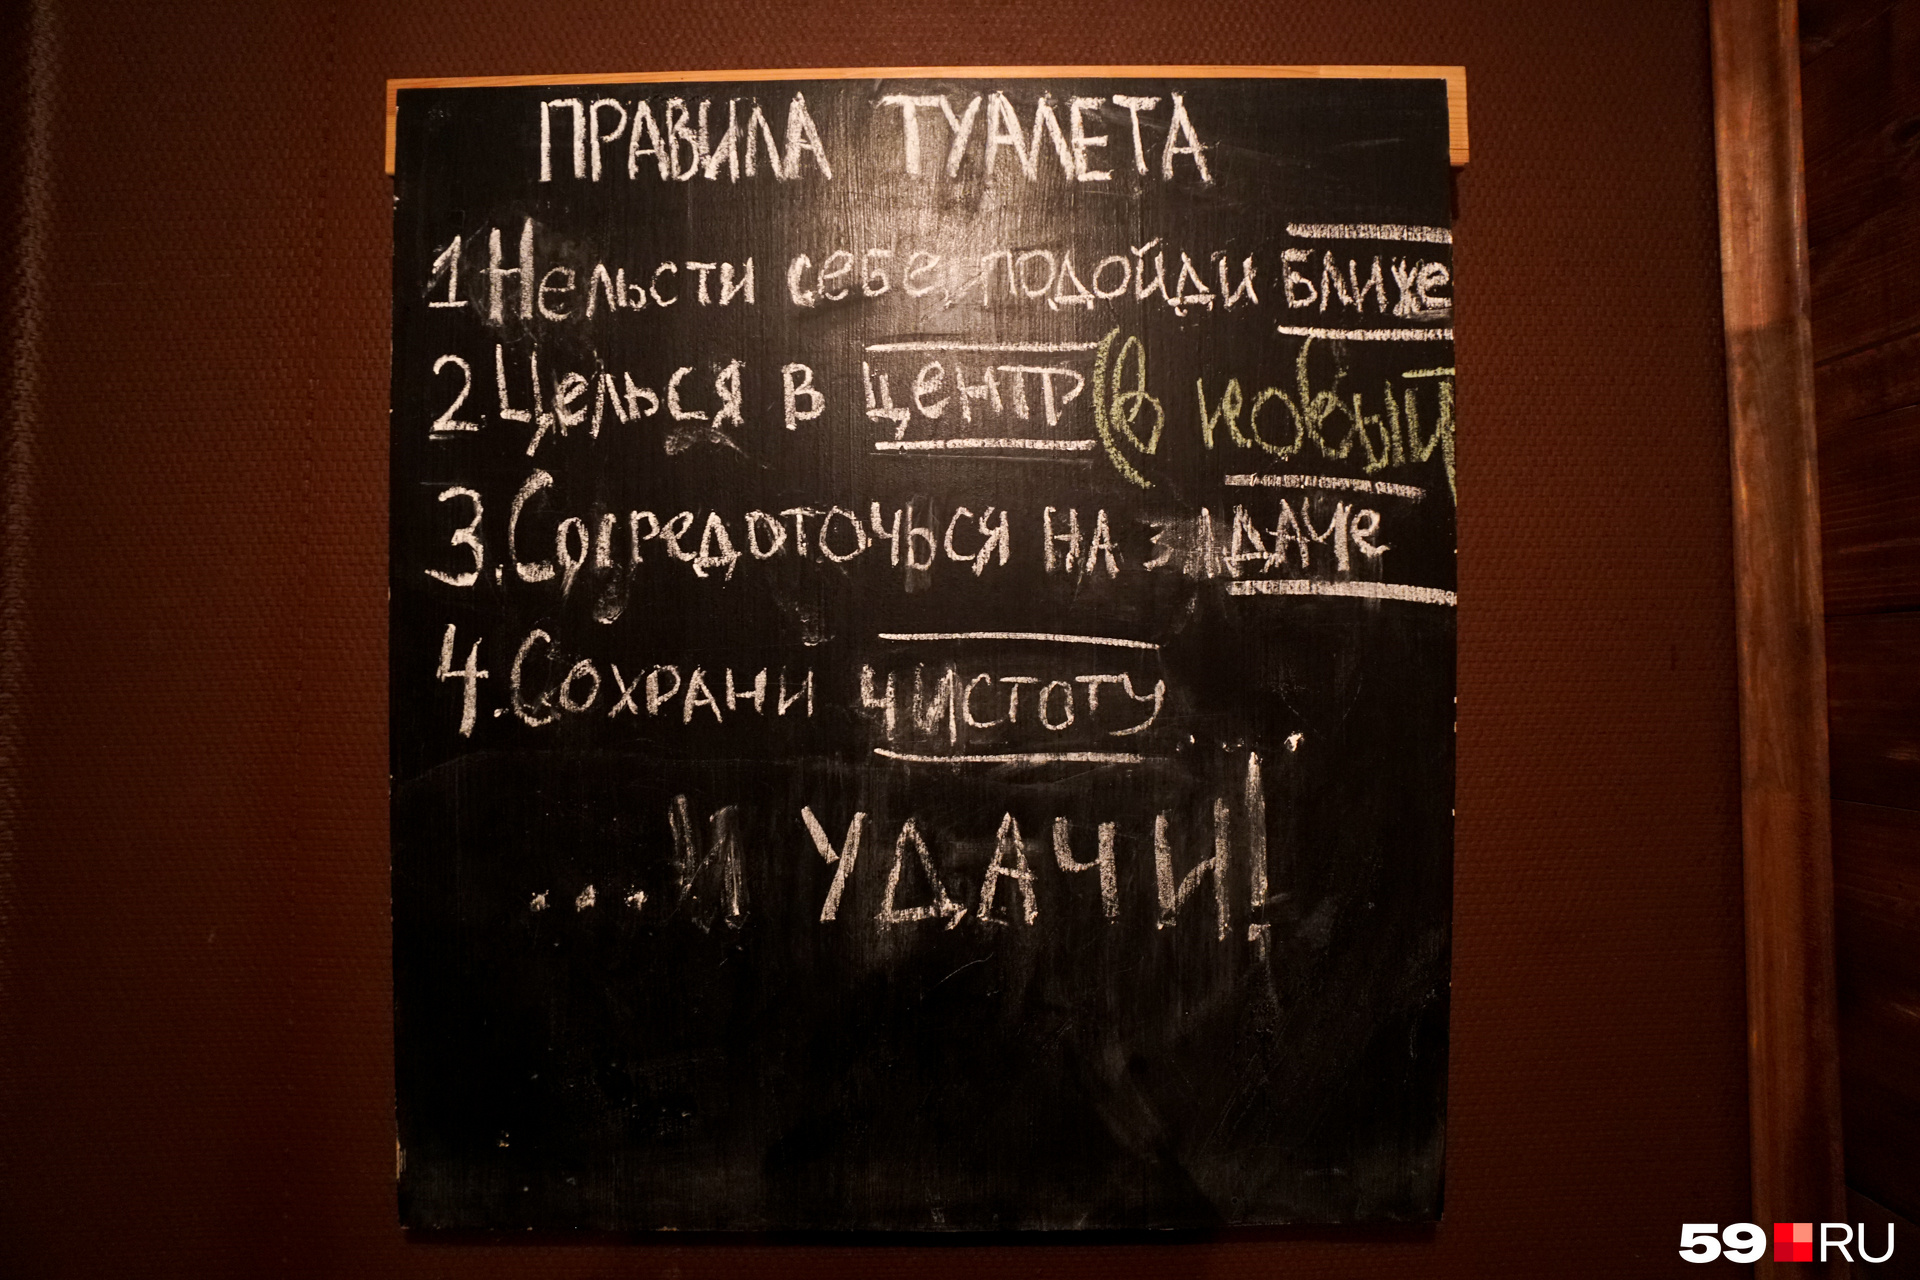 ПРАВИЛА ТУАЛЕТА
1 Не льсти себе, подойди ближе
2. Целься в центр (в новый
3. Сосредоточься на задаче
4. Сохрани чистоту...
...И УДАЧИ!
59.RU